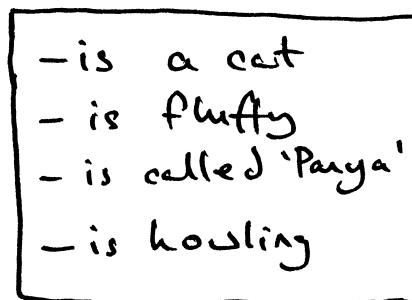 - is a cat
- is fluffy
- is called 'Panya'
- is howling